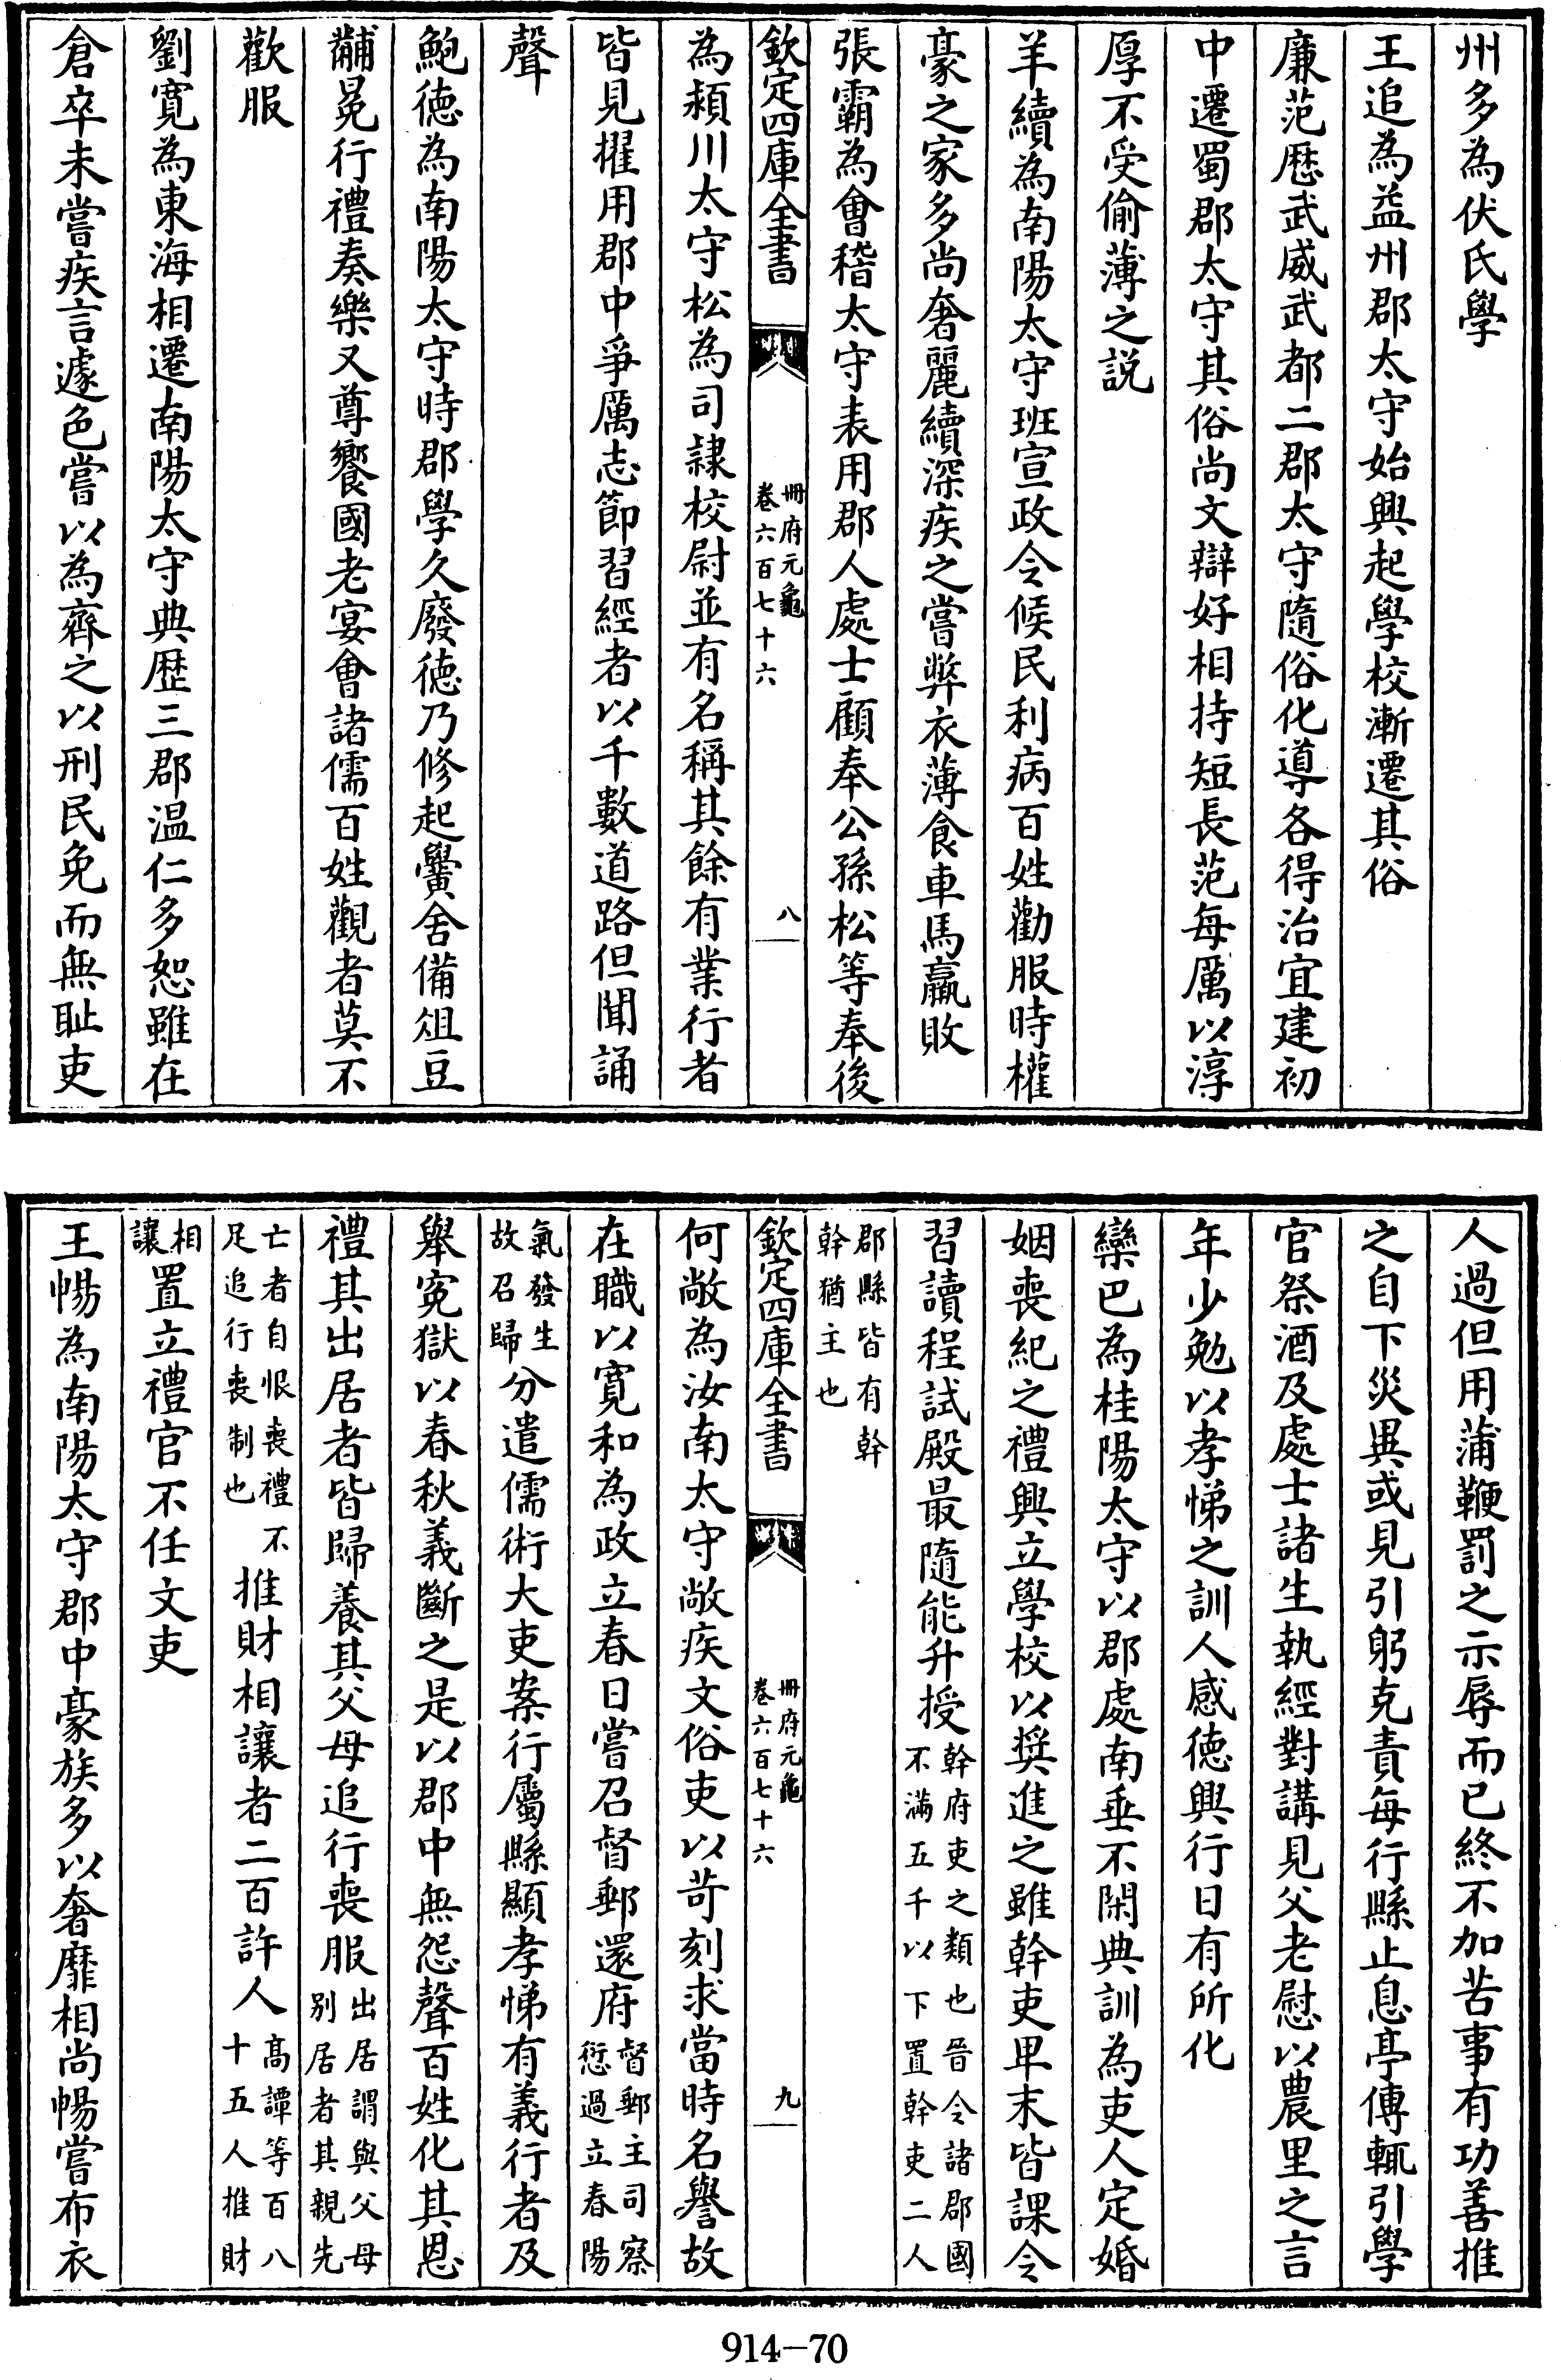 州多為伏氏學
王追為益州郡太守始興起學校漸遷其俗
廉范歴武威武都二郡太守隨俗化導各得治宜建初
中遷蜀郡太守其俗尚文辯好相持短長范每厲以淳
厚不受偷薄之説
羊續為南陽太守班宣政令候民利病百姓勸服時權
豪之家多尚奢麗續深疾之嘗弊衣薄食車馬羸敗
張霸為會稽太守表用郡人處士顧奉公孫松等奉後
欽定四庫全書
冊府元龜
卷六百七十六
八
為潁川太守松為司隸校尉並有名稱其餘有業行者
皆見擢用郡中爭厲志節習經者以千數道路但聞誦
聲
鮑德為南陽太守時郡學久廢德乃修起黌舍備俎豆
黼冕行禮奏樂又尊饗國老宴會諸儒百姓觀者莫不
歡服
劉寛為東海相遷南陽太守典歴三郡温仁多恕雖在
倉卒未嘗疾言遽色嘗以為齊之以刑民免而無恥吏
人過但用蒲鞭罰之示辱而已終不加苦事有功善推
之自下災異或見引躬克責每行縣止息亭傳輒引學
官祭酒及處士諸生執經對講見父老慰以農里之言
年少勉以孝悌之訓人感德興行日有所化
欒巴為桂陽太守以郡處南垂不閑典訓為吏人定婚
姻喪紀之禮興立學校以奬進之雖幹吏卑末皆課令
習讀程試殿最隨能升授幹府吏之類也晉令諸郡國不滿五千以下置幹吏二人
郡縣皆有幹幹猶主也
欽定四庫全書
冊府元龜
卷六百七十六
九
何敞為汝南太守敞疾文俗吏以苛刻求當時名譽故
在職以寛和為政立春日嘗召督郵還府督郵主司察愆過立春陽
氣發生故召歸分遣儒術大吏案行屬縣顯孝悌有義行者及
舉寃獄以春秋義斷之是以郡中無怨聲百姓化其恩
禮其出居者皆歸養其父母追行喪服出居謂與父母别居者其親先
亡者自恨喪禮不足追行喪制也推財相讓者二百許人髙譚等百八十五人推財
相讓置立禮官不任文吏
王暢為南陽太守郡中豪族多以奢靡相尚暢嘗布衣
914-70